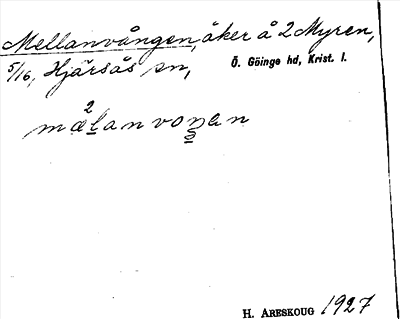 Mellanvången, åker å 2 Myren,
5/16, Hjärsås sn, Ö. Göinge hd, Krist. l.
H. ARESKOUG 1927